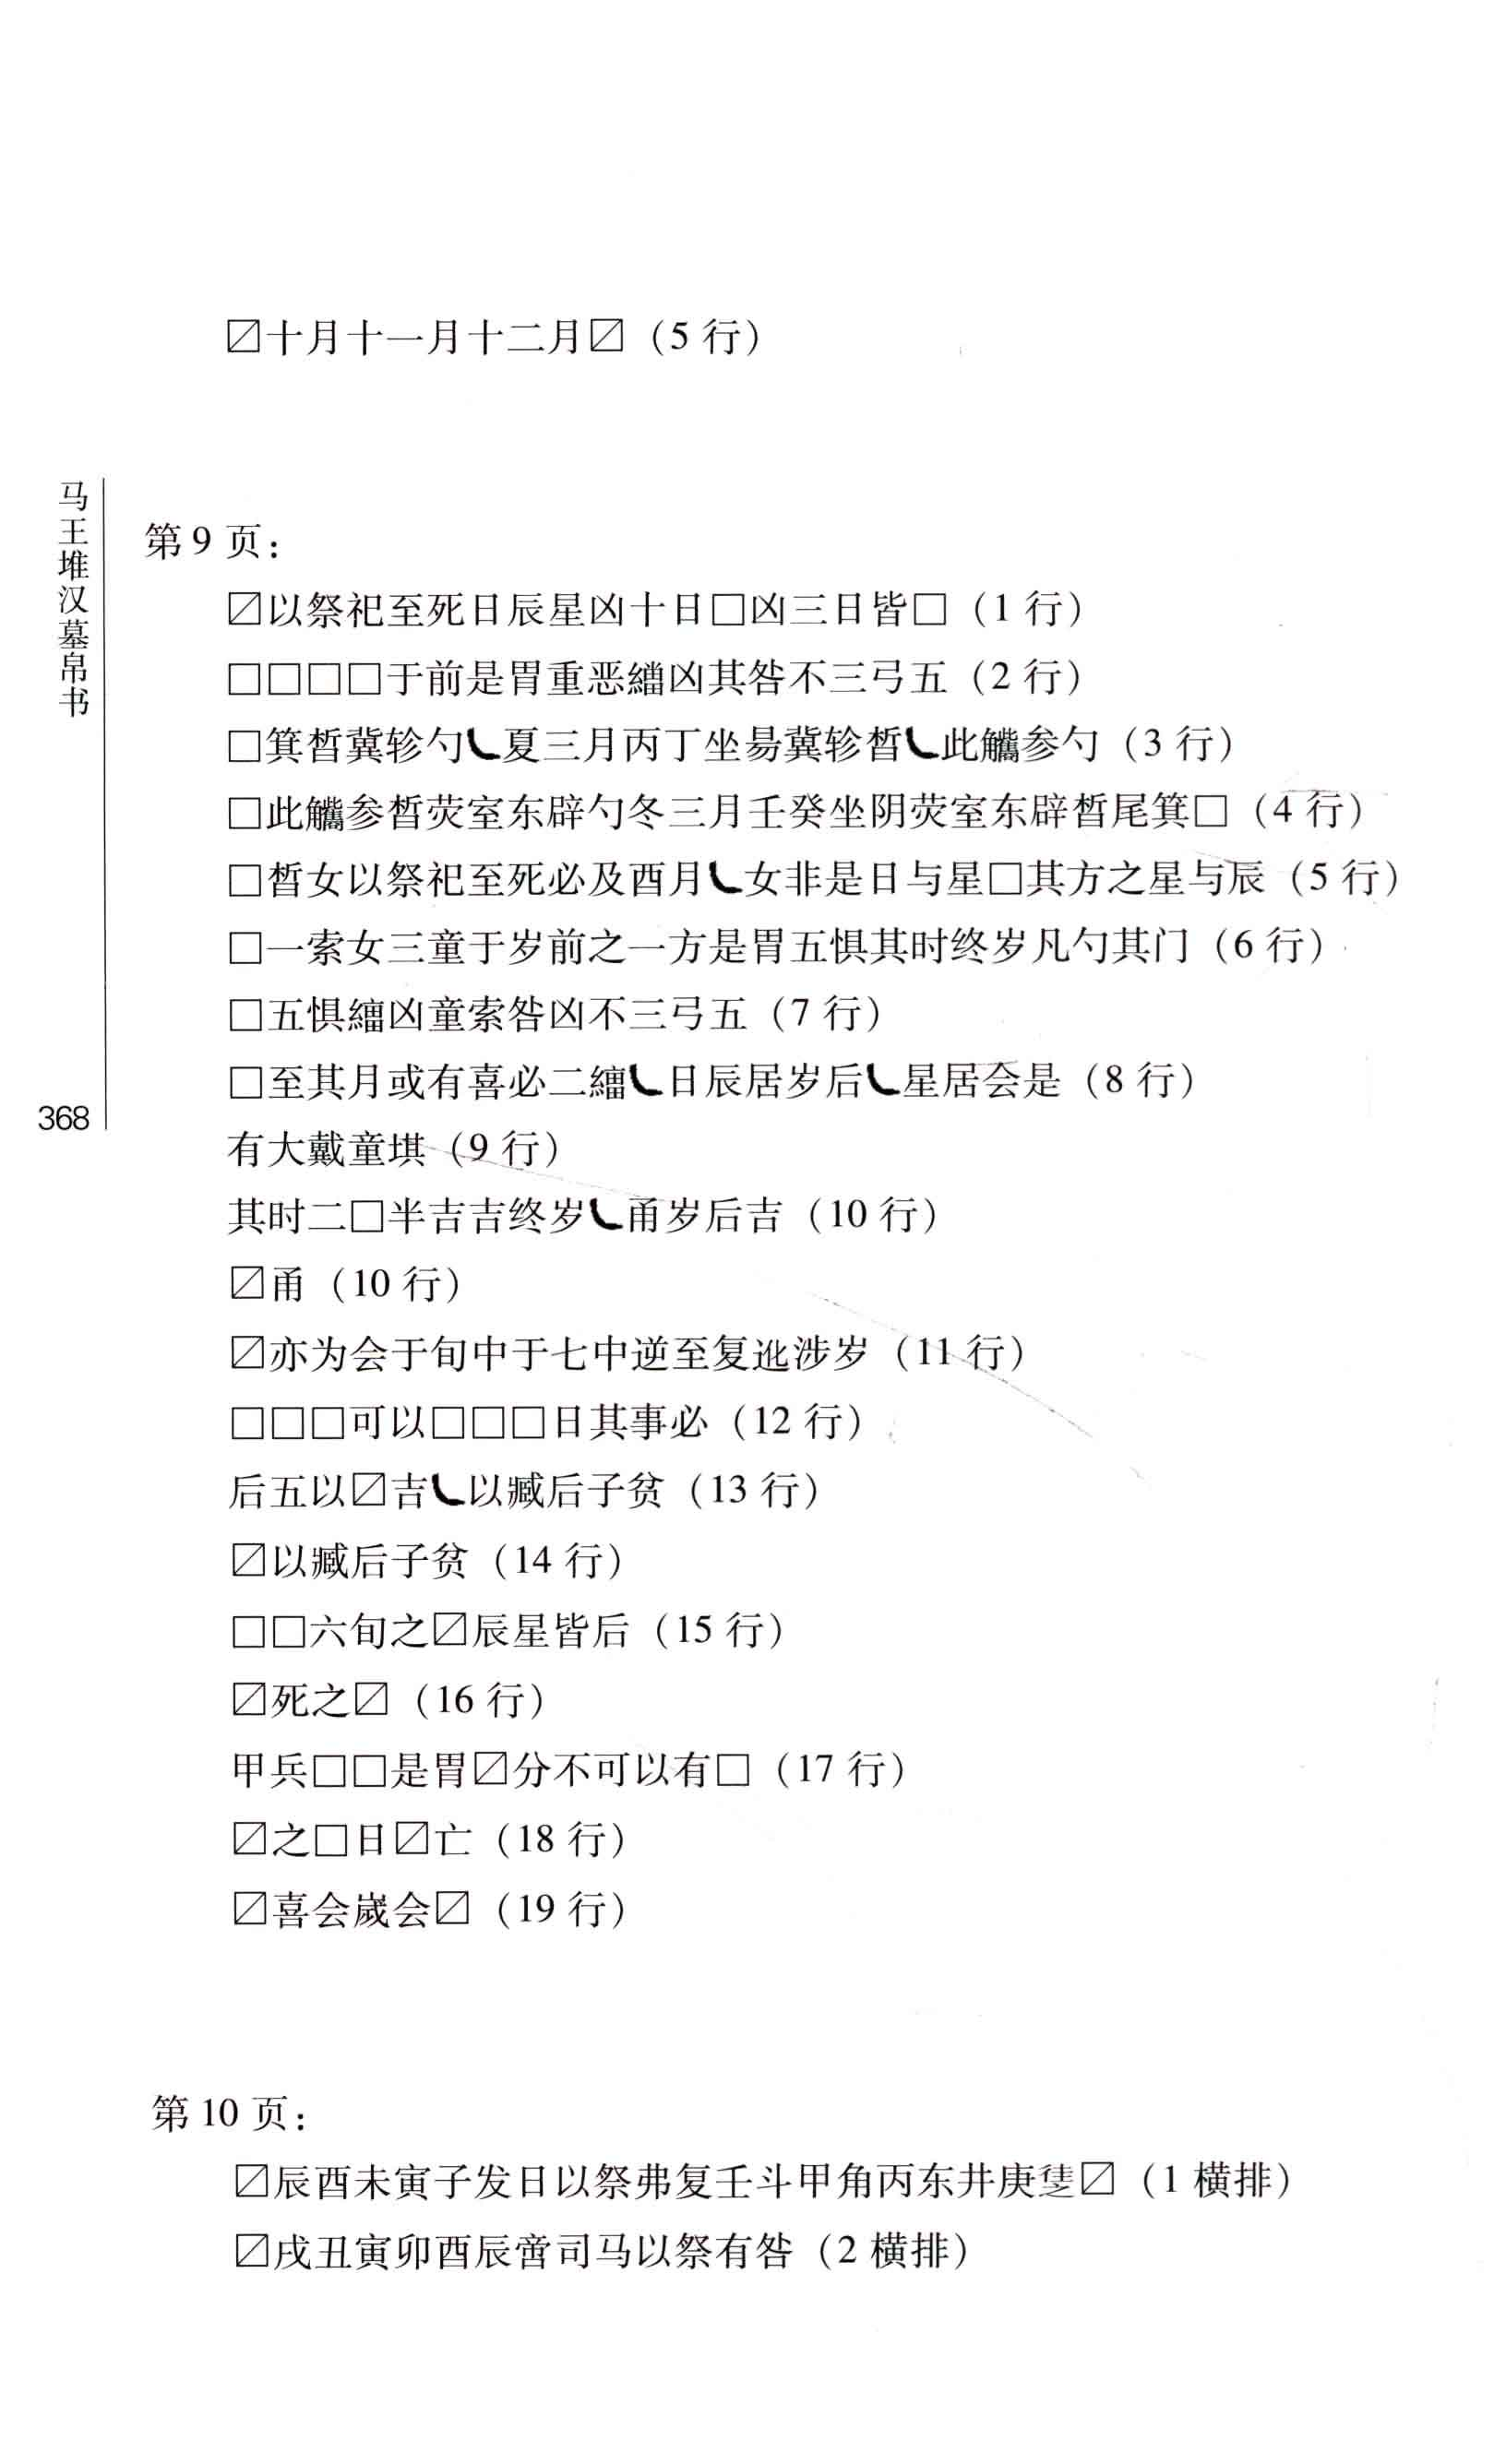 〼十月十一月十二月〼（5 行）
马王堆汉墓帛书
第 9 页：
〼以祭祀至死日辰星凶十日□凶三日皆□（1 行）
□□□□于前是胃重恶凶其咎不三弓五（2 行）
□箕晳冀轸勺乚夏三月丙丁坐昜冀轸晳乚此觿参勺（3 行）
□此觿参晳荧室东辟勺冬三月壬癸坐阴荧室东辟晳尾箕□（4 行）
□晳女以祭祀至死必及西月乚女非是日与星□其方之星与辰（5 行）
□一索女三童于岁前之一方是胃五惧其时终岁凡勺其门（6 行）
□五惧凶童索咎凶不三弓五（7 行）
□至其月或有喜必二乚日辰居岁后乚星居会是（8 行）
368
有大戴童塂（9 行）
其时二□半吉吉终岁乚甬岁后吉（10 行）
〼甬（10 行）
〼亦为会于旬中于七中逆至复涉岁（11 行）
□□□可以□□□日其事必（12 行）
后五以〼吉乚以臧后子贫（13 行）
〼以臧后子贫（14 行）
□□六旬之〼辰星皆后（15 行）
〼死之〼（16 行）
甲兵□□是胃〼分不可以有□（17 行）
〼之□日〼亡（18 行）
〼喜会嵗会〼（19 行）
第 10 页：
〼辰酉未寅子发日以祭弗复壬斗甲角丙东井庚〼（1 横排）
〼戌丑寅卯酉辰啻司马以祭有咎（2 横排）